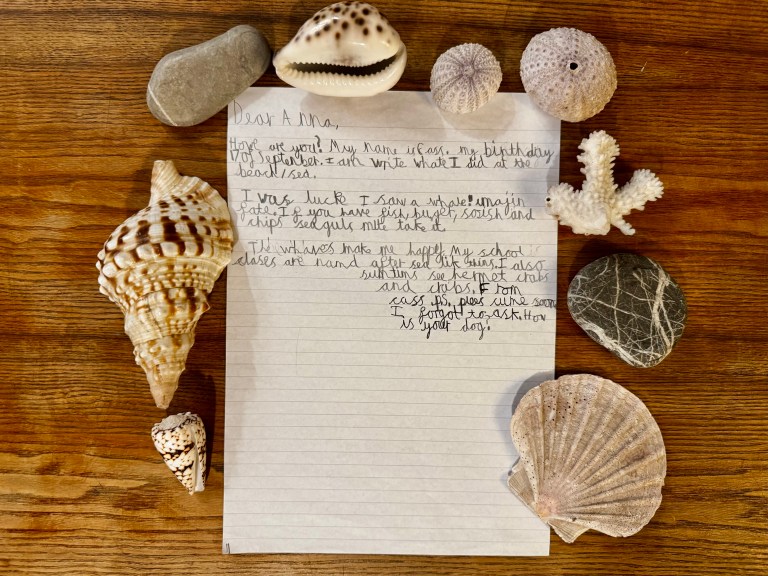 Dear Anna,
How are you? My name is Cass. my birthday
17 of September. I am write whate I did at the
beach/sea.
I was lucke I saw a whale! umajin
fate. If you have fish burger, soush and
chips seaguls mite take it.
The whaves make me happe! My school
clases are namd after sea
I also
sumtims see hermet crabs
and crabs. From
cass ps. plees cume soon
I forgot to ask. How
is your dog?